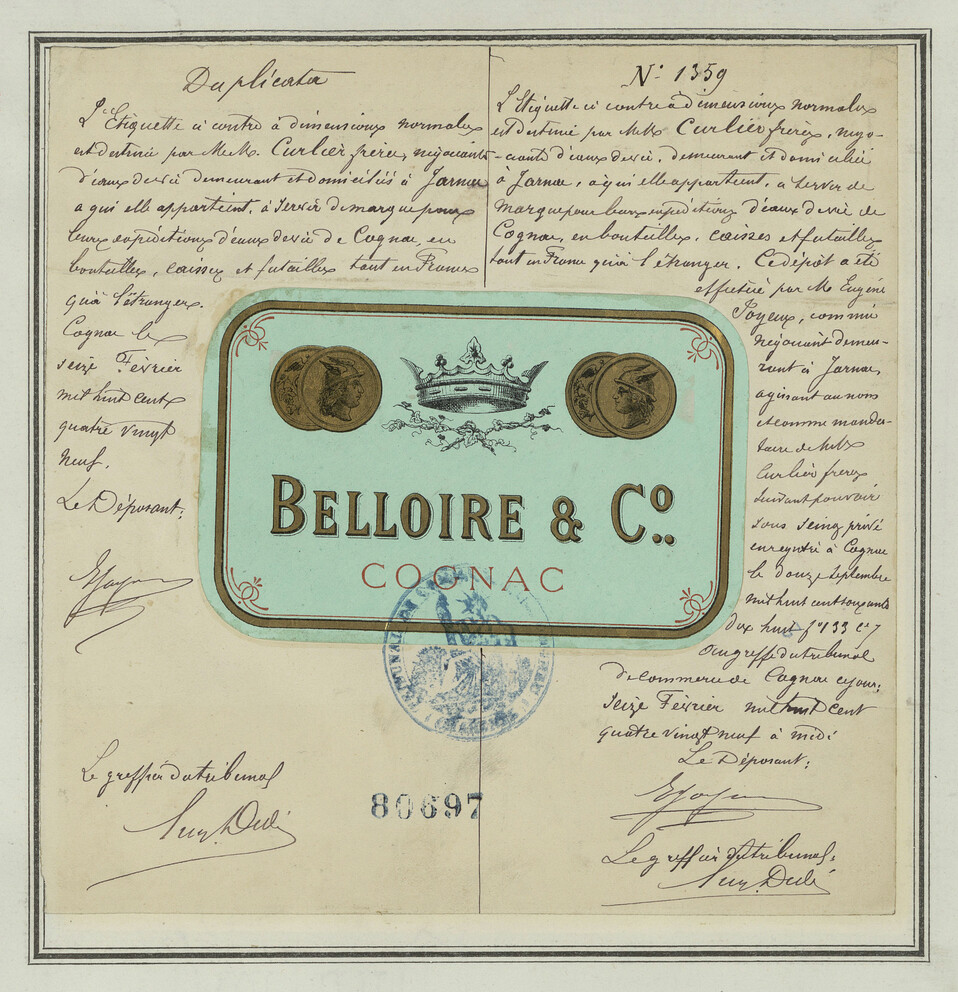 Duplicata
L'Etiquette ci contre à dimensions normales
est destinée par M.M. Curlier frères, négociants
d'eaux de vie demeurant et domiciliés à Jarnac
a qui elle appartient, à servir de marque pour
leurs expéditions d'eaux de vie de Cognac, en
bouteilles, caisses et futailles tant en France
qu'à l'étranger.
Cognac le
seize Février
mil huit cent
quatre vingt
neuf.
Le Déposant:
Le greffier du tribunal
N° 1359
L'Etiquette ci contre à dimensions normales
est destinée par M.M. Curlier frères, négo-
ciants d'eaux de vie, demeurant et domiciliés
à Jarnac, à qui elle appartient, à servir de
marque pour leurs expéditions d'eaux de vie de
Cognac, en bouteilles, caisses et futailles
tant en France qu'à l'étranger. Ce dépôt a été
effectué par Mr Eugène
Joyeux, commis
négociant demeu-
rant à Jarnac,
agissant au nom
et comme manda-
taire de M.M.
Curlier frères
suivant pouvoir
sous seing privé
enregistré à Cognac
le douze Septembre
mil huit cent soixante
dix huit fo 133 cse 7
au greffe du tribunal
de commerce de Cognac ce jour:
seize Février mil huit cent
quatre vingt neuf à midi
Le Déposant:
Le greffier du tribunal:
BELLOIRE & Co.
COGNAC
80697